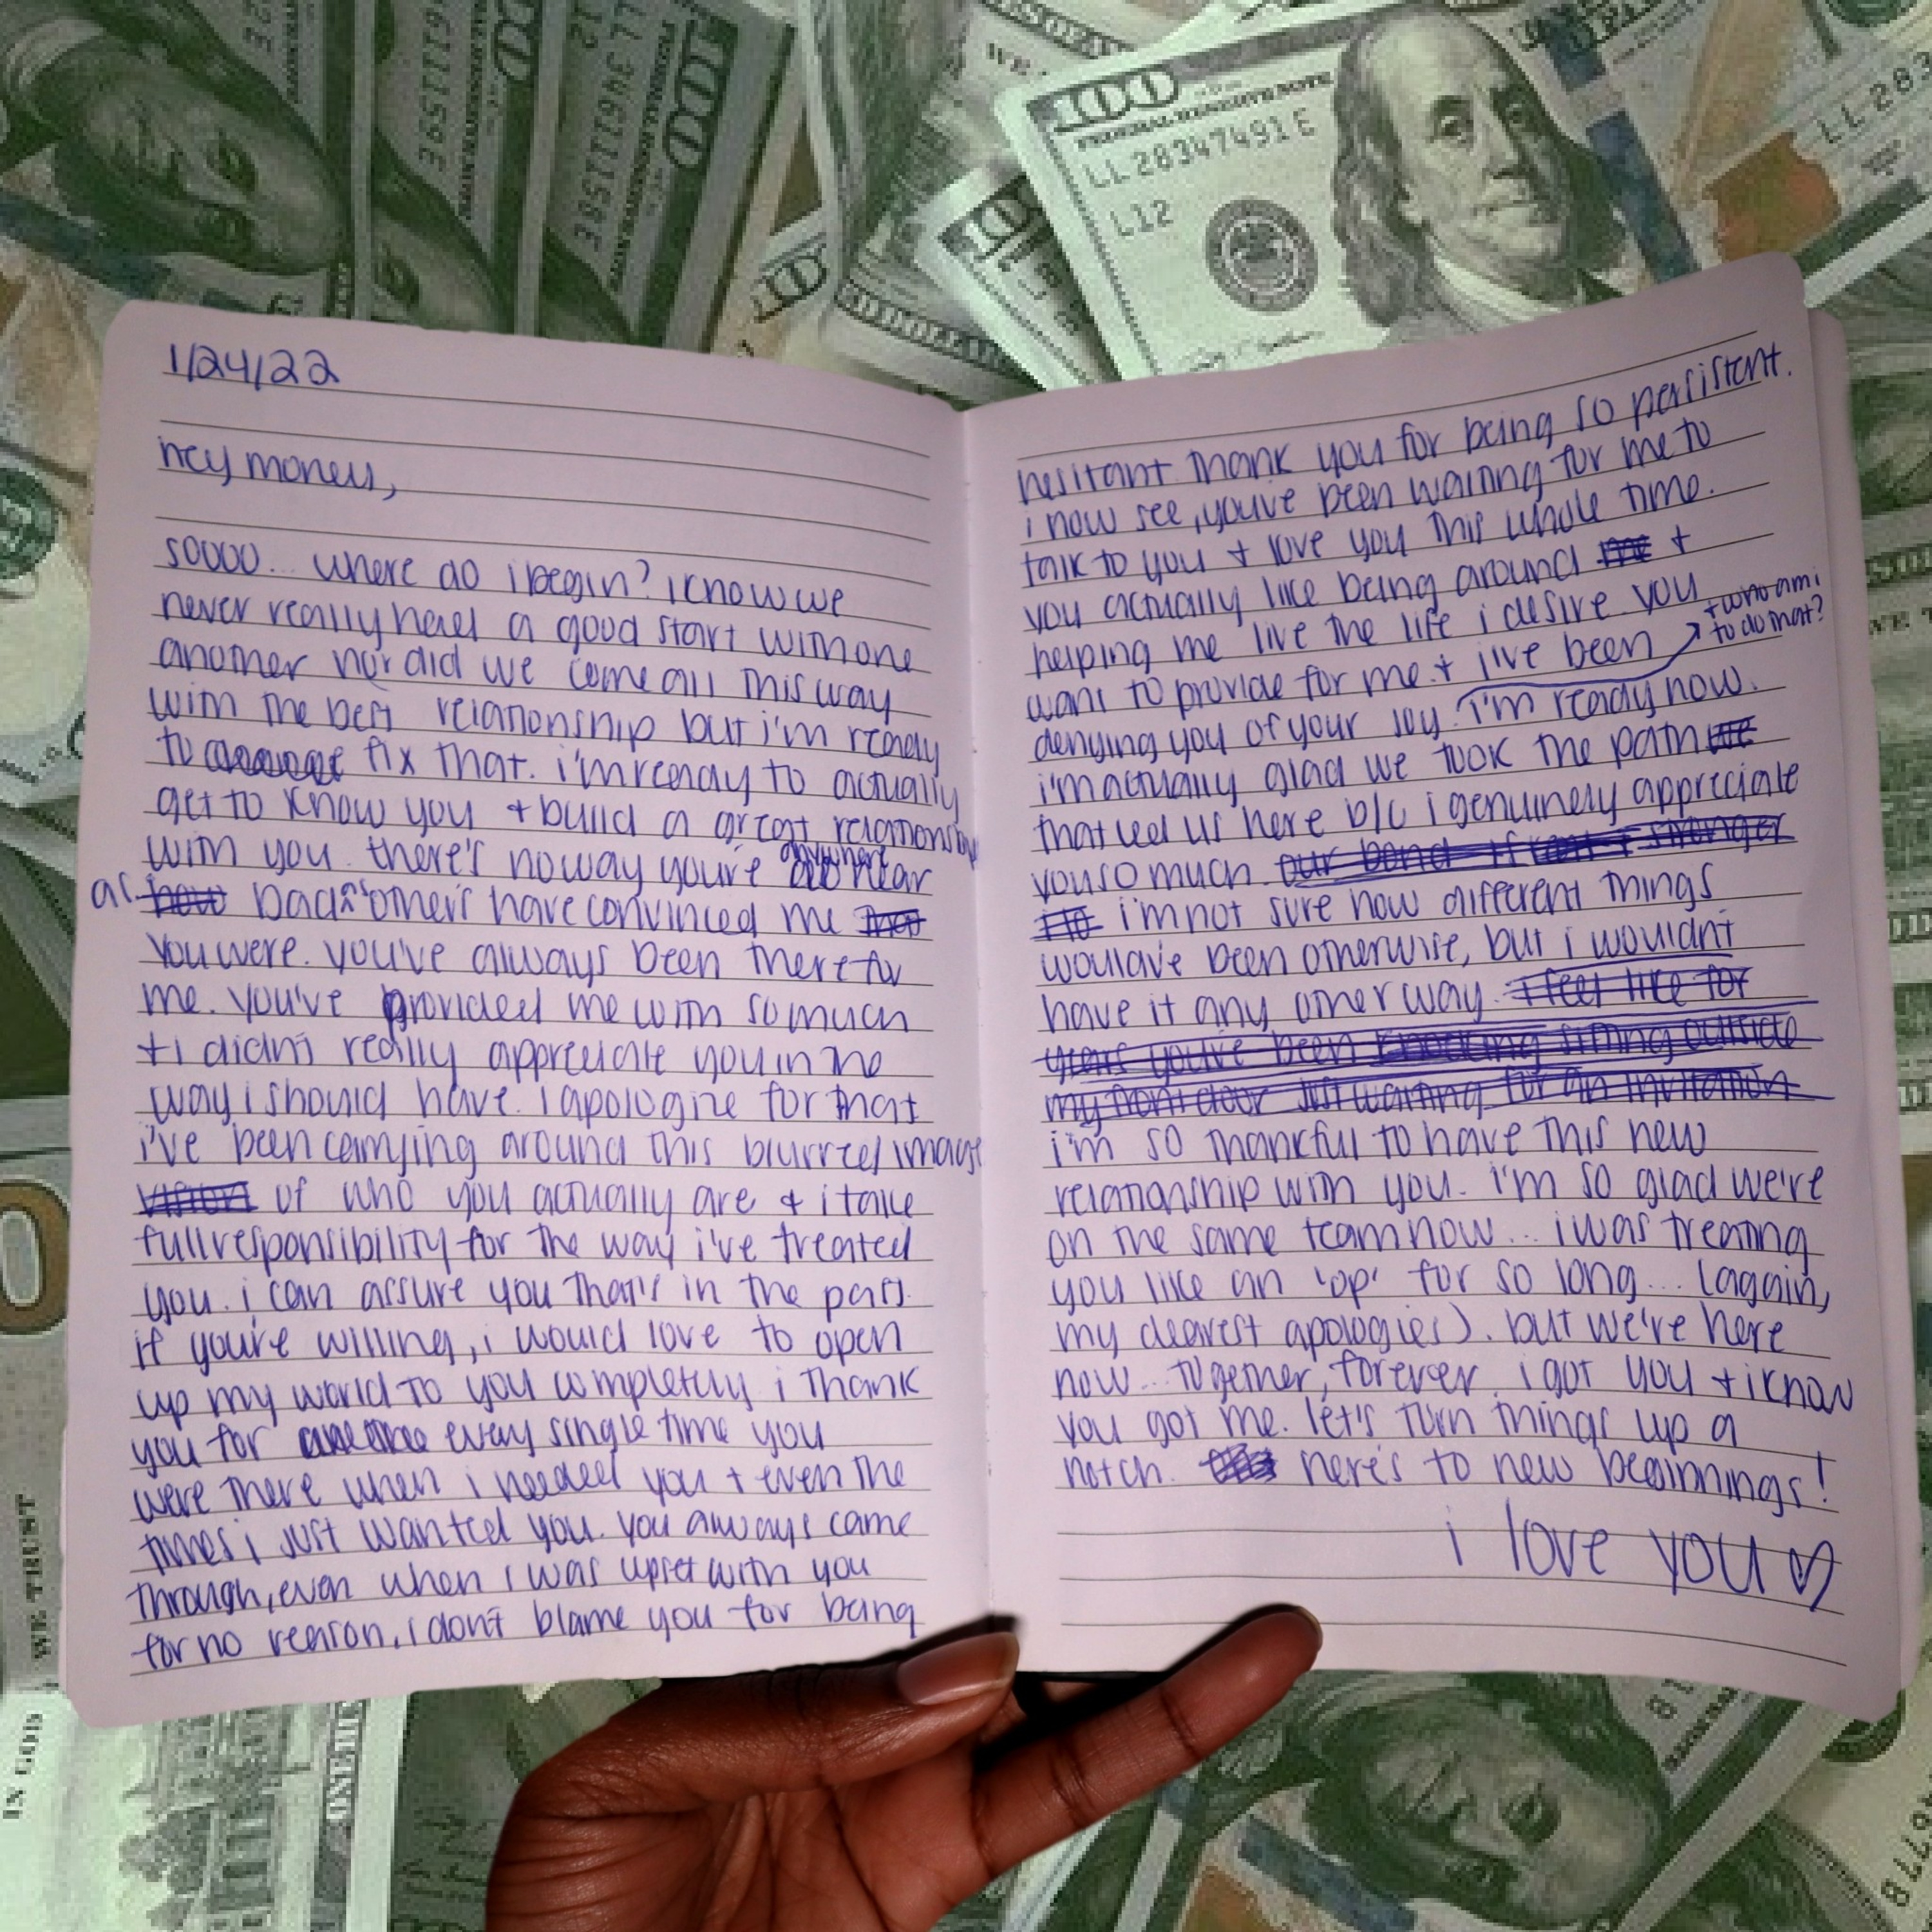 WE
100
FEDERAL RESERVE NOTE
LL 28347491 E
L12
LL 34611158 E
100
1/24/22
hey money,
soooo... where do i begin? i know we
never really had a good start with one
another nor did we come all this way
with the best relationship but i'm ready
to fix that. i'm ready to actually
get to know you + build a great relationship
with you. there's no way you're anywhere near
as how bad as others have convinced me that
you were. you've always been there for
me. you've provided me with so much
+ i didn't really appreciate you in the
way i should have. i apologize for that
i've been carrying around this blurred image
vision of who you actually are & i take
full responsibility for the way i've treated
you. i can assure you that's in the past.
if you're willing, i would love to open
up my world to you completely. i thank
you for every single time you
were there when i needed you + even the
times i just wanted you. you always came
through, even when i was upset with you
for no reason. i don't blame you for being
hesitant. thank you for being so persistent.
i now see, you've been waiting for me to
talk to you + love you this whole time.
you actually like being around me +
helping me live the life i desire. you
want to provide for me. + i've been
denying you of your joy. + who am i
to do that? i'm ready now.
i'm actually glad we took the path we
that led us here b/c i genuinely appreciate
you so much. our bond stronger
i'm not sure how different things
would've been otherwise, but i wouldn't
have it any other way. i feel like for
years you've been knocking sitting outside
my front door just waiting for an invitation
i'm so thankful to have this new
relationship with you. i'm so glad we're
on the same team now... i was treating
you like an 'op' for so long... (again,
my dearest apologies). but we're here
now... together, forever. i got you + i know
you got me. let's turn things up a
notch. here's to new beginnings!
i love you
WE TRUST